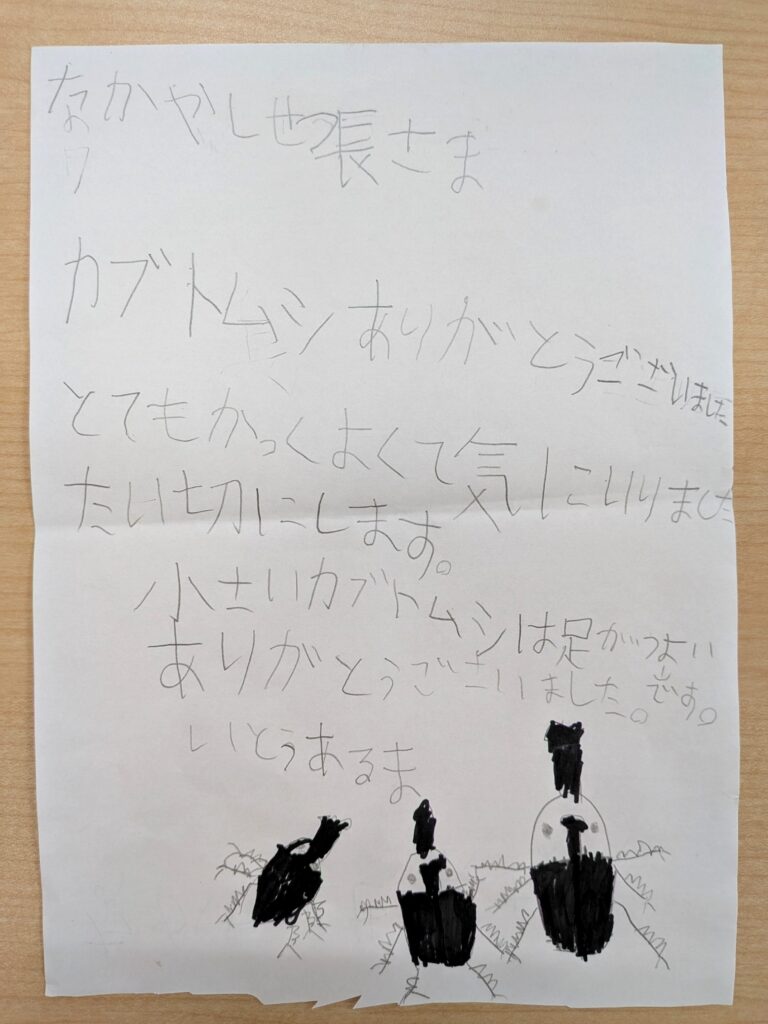 なかやしせつ長さま
より
カブトムシありがとうございました
とてもかっこよくて気にいりました
たい切にします。
小さいカブトムシは足がつよいです。
ありがとうございました。
いとうあるま